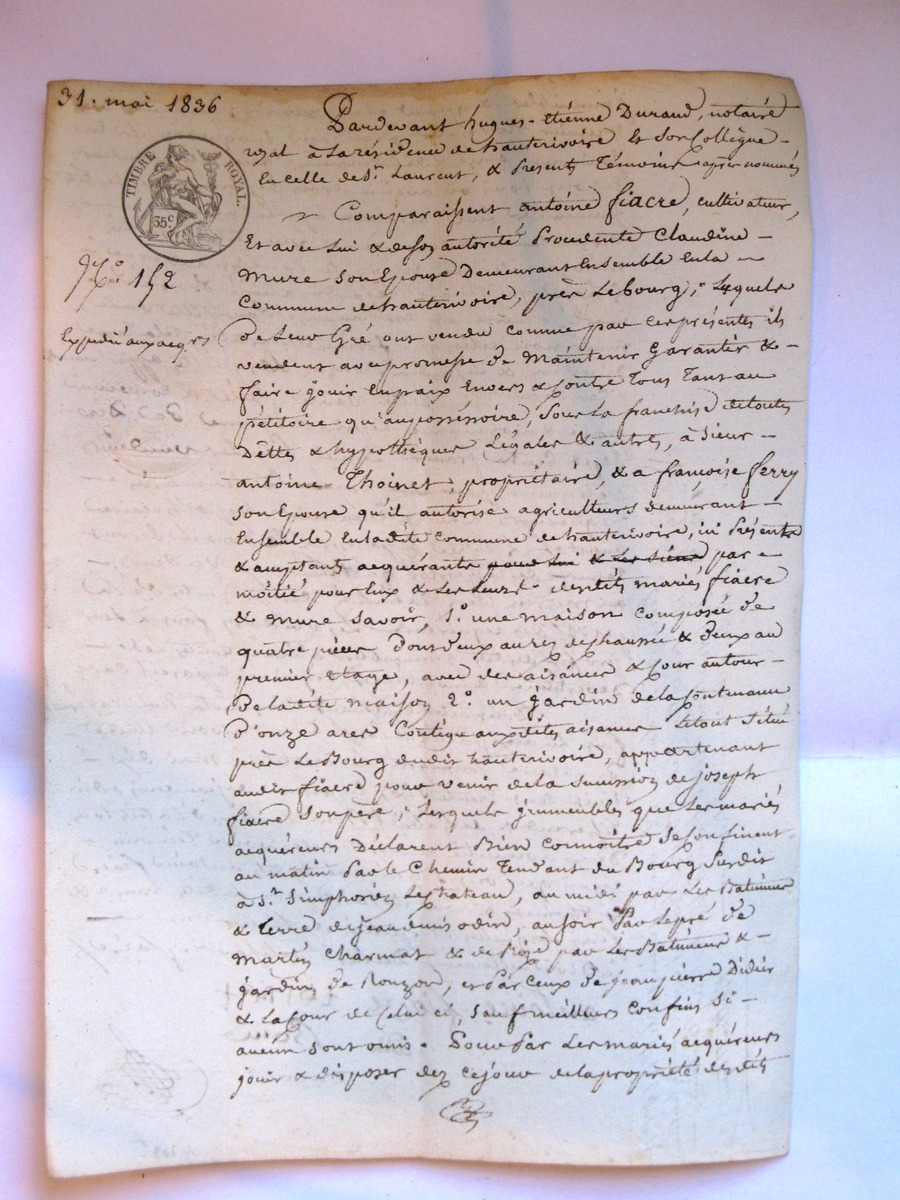 31. mai 1836
TIMBRE ROYAL.
35c
152
Expédié aux acqrs
Pardevant hugues-etiénne Durand, notaire
royal à la résidence de hauterivoire & son Collègue
En celle de St. Laurent, & présents Témoins après nommés
Comparaissent antoine fiacre, cultivateur,
Et avec lui & de son autorité Procédente Claudine
mure son Epouse Demeurant Ensemble En la
Commune de hauterivoire, près Le bourg; Lesquels
De Leur Gré ont vendu comme par ces présentes ils
vendent avec promesse de maintenir Garantir &
faire jouir En paix Envers & Contre Tous Tant au
pétitoire qu'au possessoire, sous La franchise de toutes
Dettes & hypothèques Légales & autres, à Sieur
antoine Thoinet, propriétaire, & a françoise ferry
son Epouse qu'il autorise agriculteurs demeurant
Ensemble En la dite Commune de hauterivoire, ici Présents
& acceptants acquérants pour Lui & Les siens par
moitié pour Eux & Les Leurs desdits mariés fiacre
& mure Savoir, 1o. une maison composée de
quatre pièces Dont deux au rez de chaussée & deux au
premier étage, avec des aisances & Cour autour
De la dite maison 2o. un jardin de la Contenance
D'onze ares Contigu aux dites aisances Le tout Situé
près Le Bourg dudit hauterivoire, appartenant
audit fiacre pour venir de la Succession de joseph
fiacre son père; Lesquels immeubles que Les mariés
acquéreurs Déclarent Bien connoître Se confinent
au matin Par le Chemin Tendant du Bourg Susdit
à St. Simphorien Le chateau, au midi par Les Batiments
& Terre de jean denis odin, au soir Par Le pré de
Martin Charmat & de Bize par Les Batiments &
jardin de Ronzon, et Par Ceux De jean pierre Didier
& La Cour de Celui ci, Sauf meilleurs Confins Si
aucun sont omis. Pour Par Les mariés acquéreurs
jouir & disposer dez Ce jour de la propriété desdits